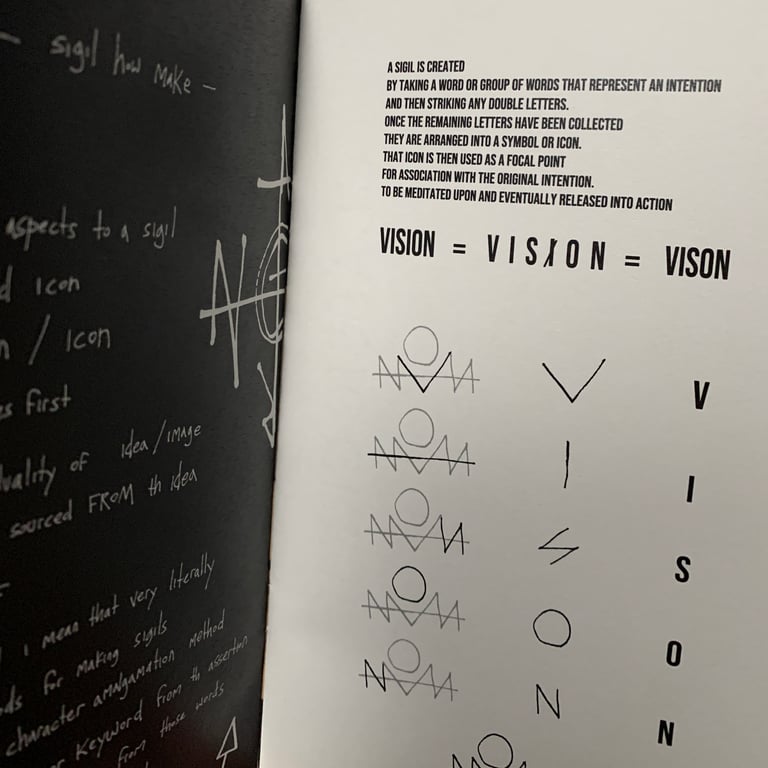 - sigil how make -
aspects to a sigil
icon
/ icon
first
of idea/image
sourced FROM th idea
I mean that very literally
for making sigils
character amalgamation method
Keyword from th assertion
from these words
A SIGIL IS CREATED
BY TAKING A WORD OR GROUP OF WORDS THAT REPRESENT AN INTENTION
AND THEN STRIKING ANY DOUBLE LETTERS.
ONCE THE REMAINING LETTERS HAVE BEEN COLLECTED
THEY ARE ARRANGED INTO A SYMBOL OR ICON.
THAT ICON IS THEN USED AS A FOCAL POINT
FOR ASSOCIATION WITH THE ORIGINAL INTENTION.
TO BE MEDITATED UPON AND EVENTUALLY RELEASED INTO ACTION
VISION = VISION = VISON
V V
I I
S S
O O
N N